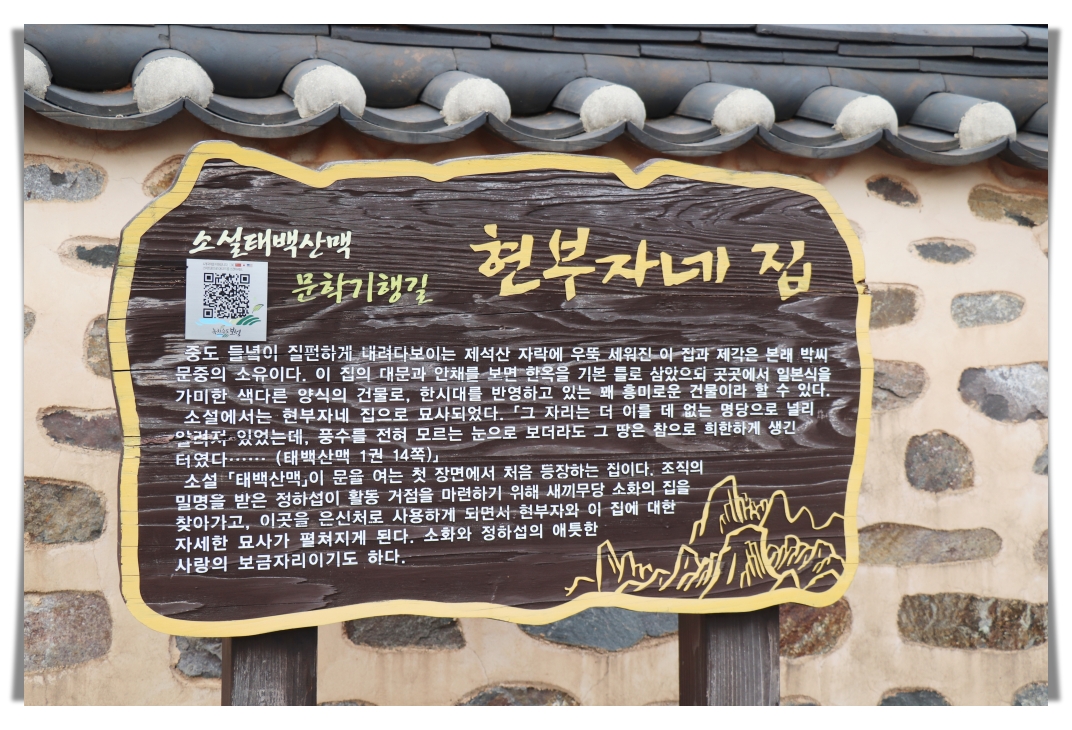 소설태백산맥
문학기행길
현부자네 집
중도 들녘이 질펀하게 내려다보이는 제석산 자락에 우뚝 세워진 이 집과 제각은 본래 박씨
문중의 소유이다. 이 집의 대문과 안채를 보면 한옥을 기본 틀로 삼았으되 곳곳에서 일본식을
가미한 색다른 양식의 건물로, 한시대를 반영하고 있는 꽤 흥미로운 건물이라 할 수 있다.
소설에서는 현부자네 집으로 묘사되었다. 「그 자리는 더 이를 데 없는 명당으로 널리
알려져 있었는데, 풍수를 전혀 모르는 눈으로 보더라도 그 땅은 참으로 희한하게 생긴
터였다…… (태백산맥 1권 14쪽)」
소설 「태백산맥」이 문을 여는 첫 장면에서 처음 등장하는 집이다. 조직의
밀명을 받은 정하섭이 활동 거점을 마련하기 위해 새끼무당 소화의 집을
찾아가고, 이곳을 은신처로 사용하게 되면서 현부자와 이 집에 대한
자세한 묘사가 펼쳐지게 된다. 소화와 정하섭의 애틋한
사랑의 보금자리이기도 하다.